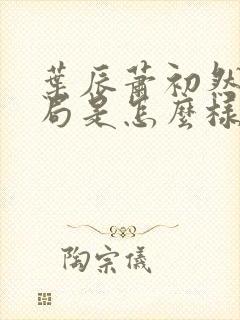 葉辰蕭初然
局是怎麼樣
陶宗儀